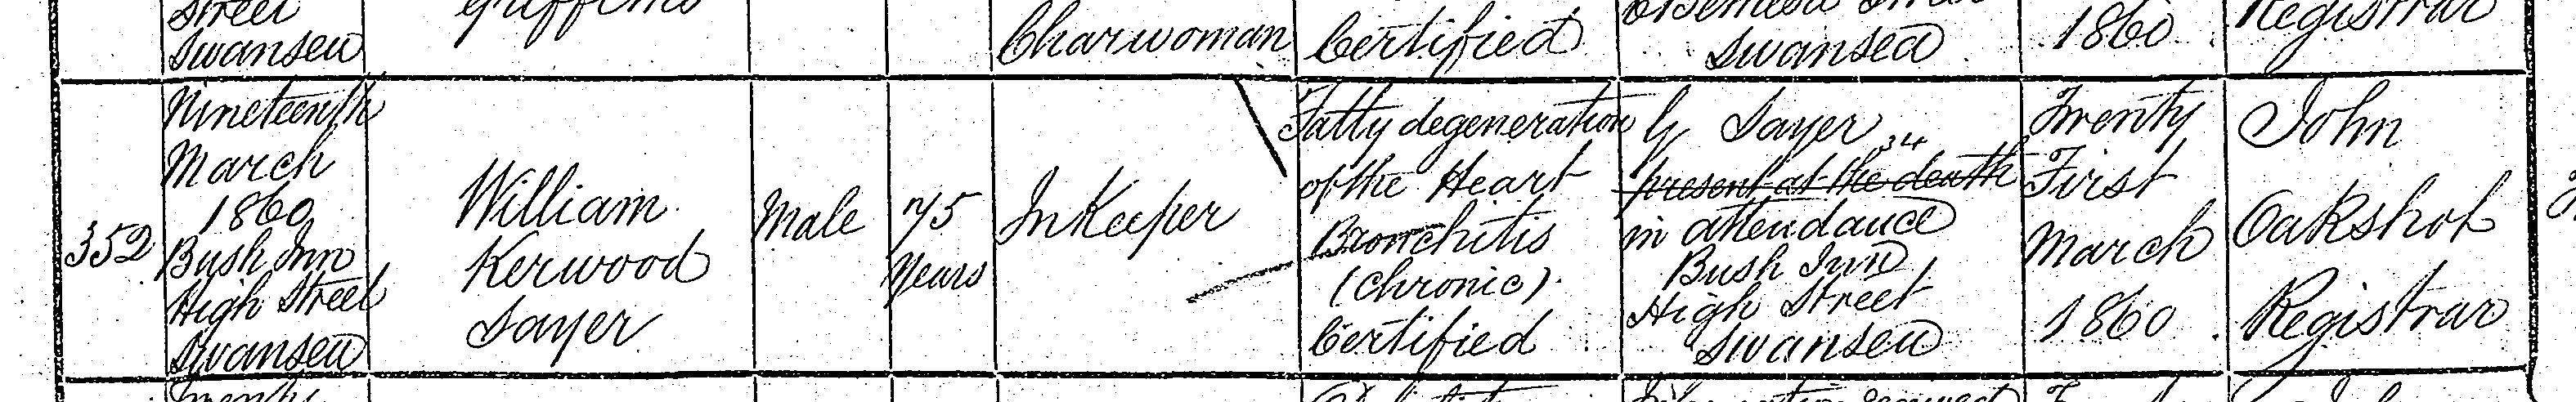 Street
Swansea
Griffiths
Charwoman
Certified
Swansea
1860
Registrar
352
Nineteenth
March
1860
Bush Inn
High Street
Swansea
William
Kerwood
Sayer
Male
75
Years
InKeeper
Fatty degeneration
of the Heart
Bronchitis
(Chronic).
Certified
G Sayer
present at the death
in attendance
Bush Inn
High Street
Swansea
Twenty
First
March
1860
John
Oakshot
Registrar